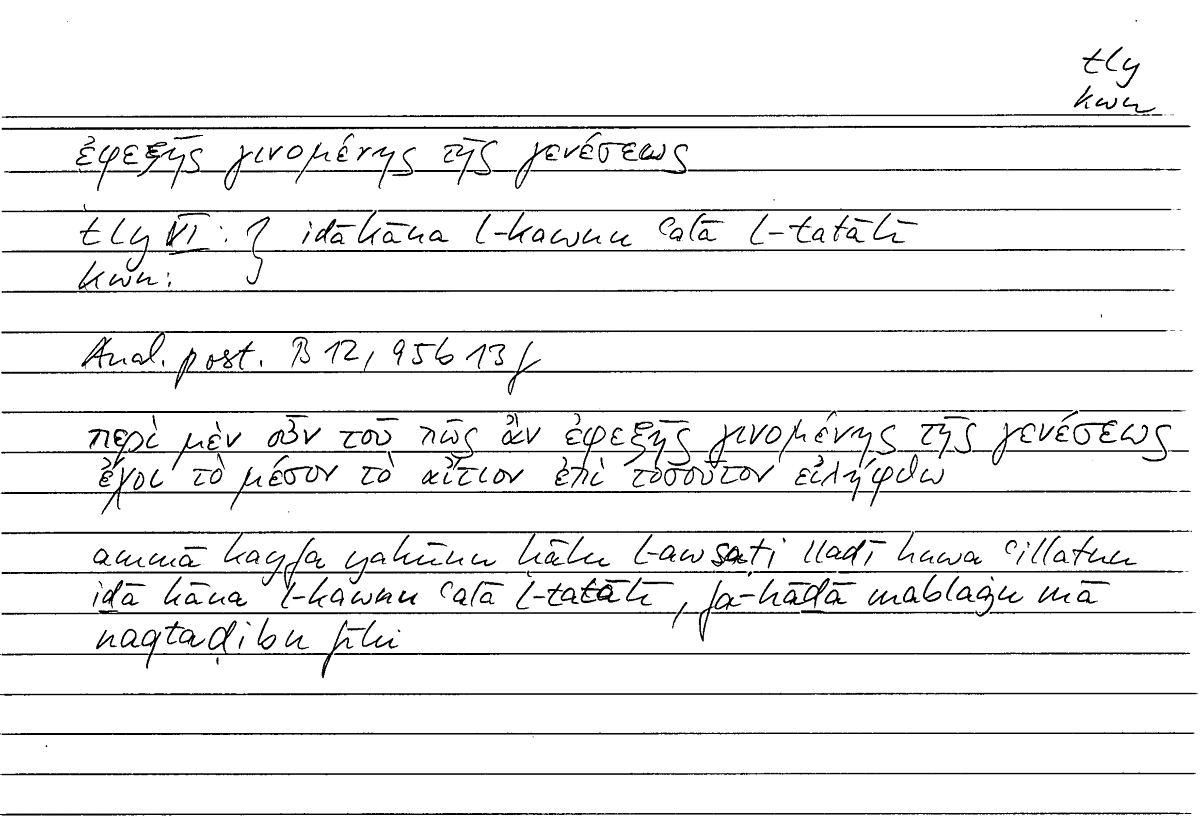 tly
kwn
ἐφεξῆς γινομένης τῆς γενέσεως
tly VI : } iḏā kāna l-kawnu ʿalā l-tatālī
kwn :
Anal. post. B 12, 95b 13 f
περὶ μὲν οὖν τοῦ πῶς ἂν ἐφεξῆς γινομένης τῆς γενέσεως
ἔχοι τὸ μέσον τὸ αἴτιον ἐπὶ τοσοῦτον εἰλήφθω
ammā kayfa yakūnu ḥālu l-awsaṭi lladī huwa ʿillatun
iḏā kāna l-kawnu ʿalā l-tatālī, fa-hāḏā mablaġu mā
naqtaḍibu fīhi